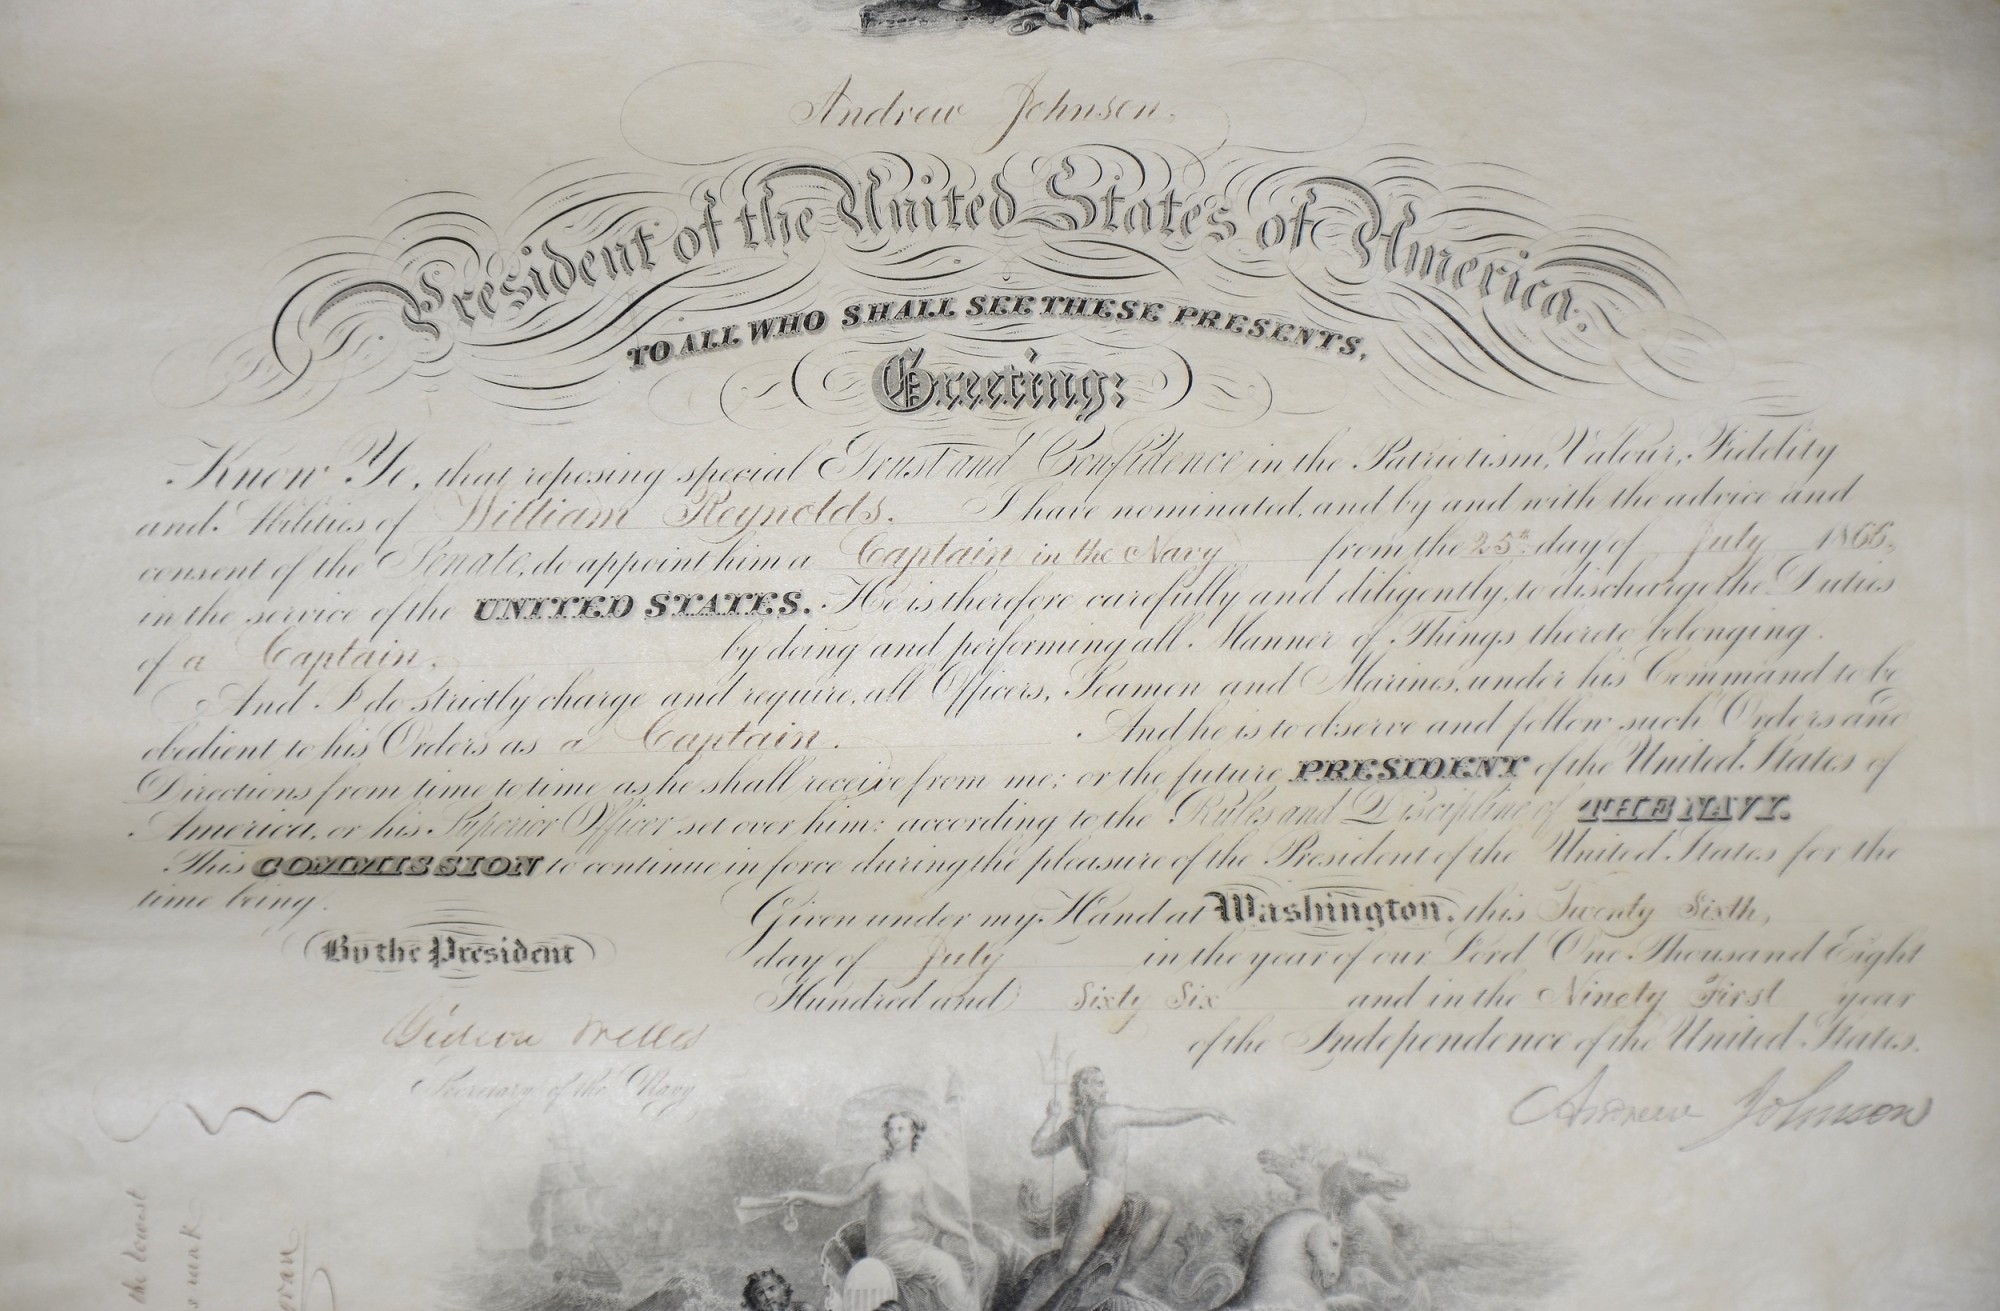 Andrew Johnson.
President of the United States of America.
TO ALL WHO SHALL SEE THESE PRESENTS,
Greeting:
Know Ye, that reposing special Trust and Confidence in the Patriotism, Valour, Fidelity
and Abilities of William Reynolds. I have nominated, and by and with the advice and
consent of the Senate, do appoint him a Captain in the Navy from the 25th day of July 1866,
in the service of the UNITED STATES. He is therefore carefully and diligently, to discharge the Duties
of a Captain, by doing and performing all Manner of Things thereto belonging.
And I do strictly charge and require, all Officers, Seamen and Marines, under his Command to be
obedient to his Orders as a Captain. And he is to observe and follow such Orders and
Directions from time to time as he shall receive from me; or the future PRESIDENT of the United States of
America, or his Superior Officer set over him: according to the Rules and Discipline of THE NAVY.
This COMMISSION to continue in force during the pleasure of the President of the United States for the
time being.
Given under my Hand at Washington, this Twenty Sixth,
By the President
day of July in the year of our Lord One Thousand Eight
Hundred and Sixty Six and in the Ninety First year
of the Independence of the United States.
Gideon Welles
Secretary of the Navy
Andrew Johnson
the lowest